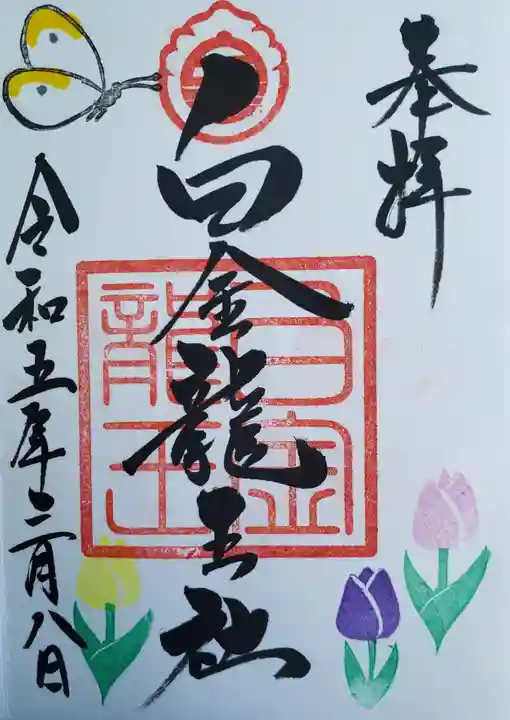 奉拝
白金龍王社
白金
龍王
令和五年三月八日